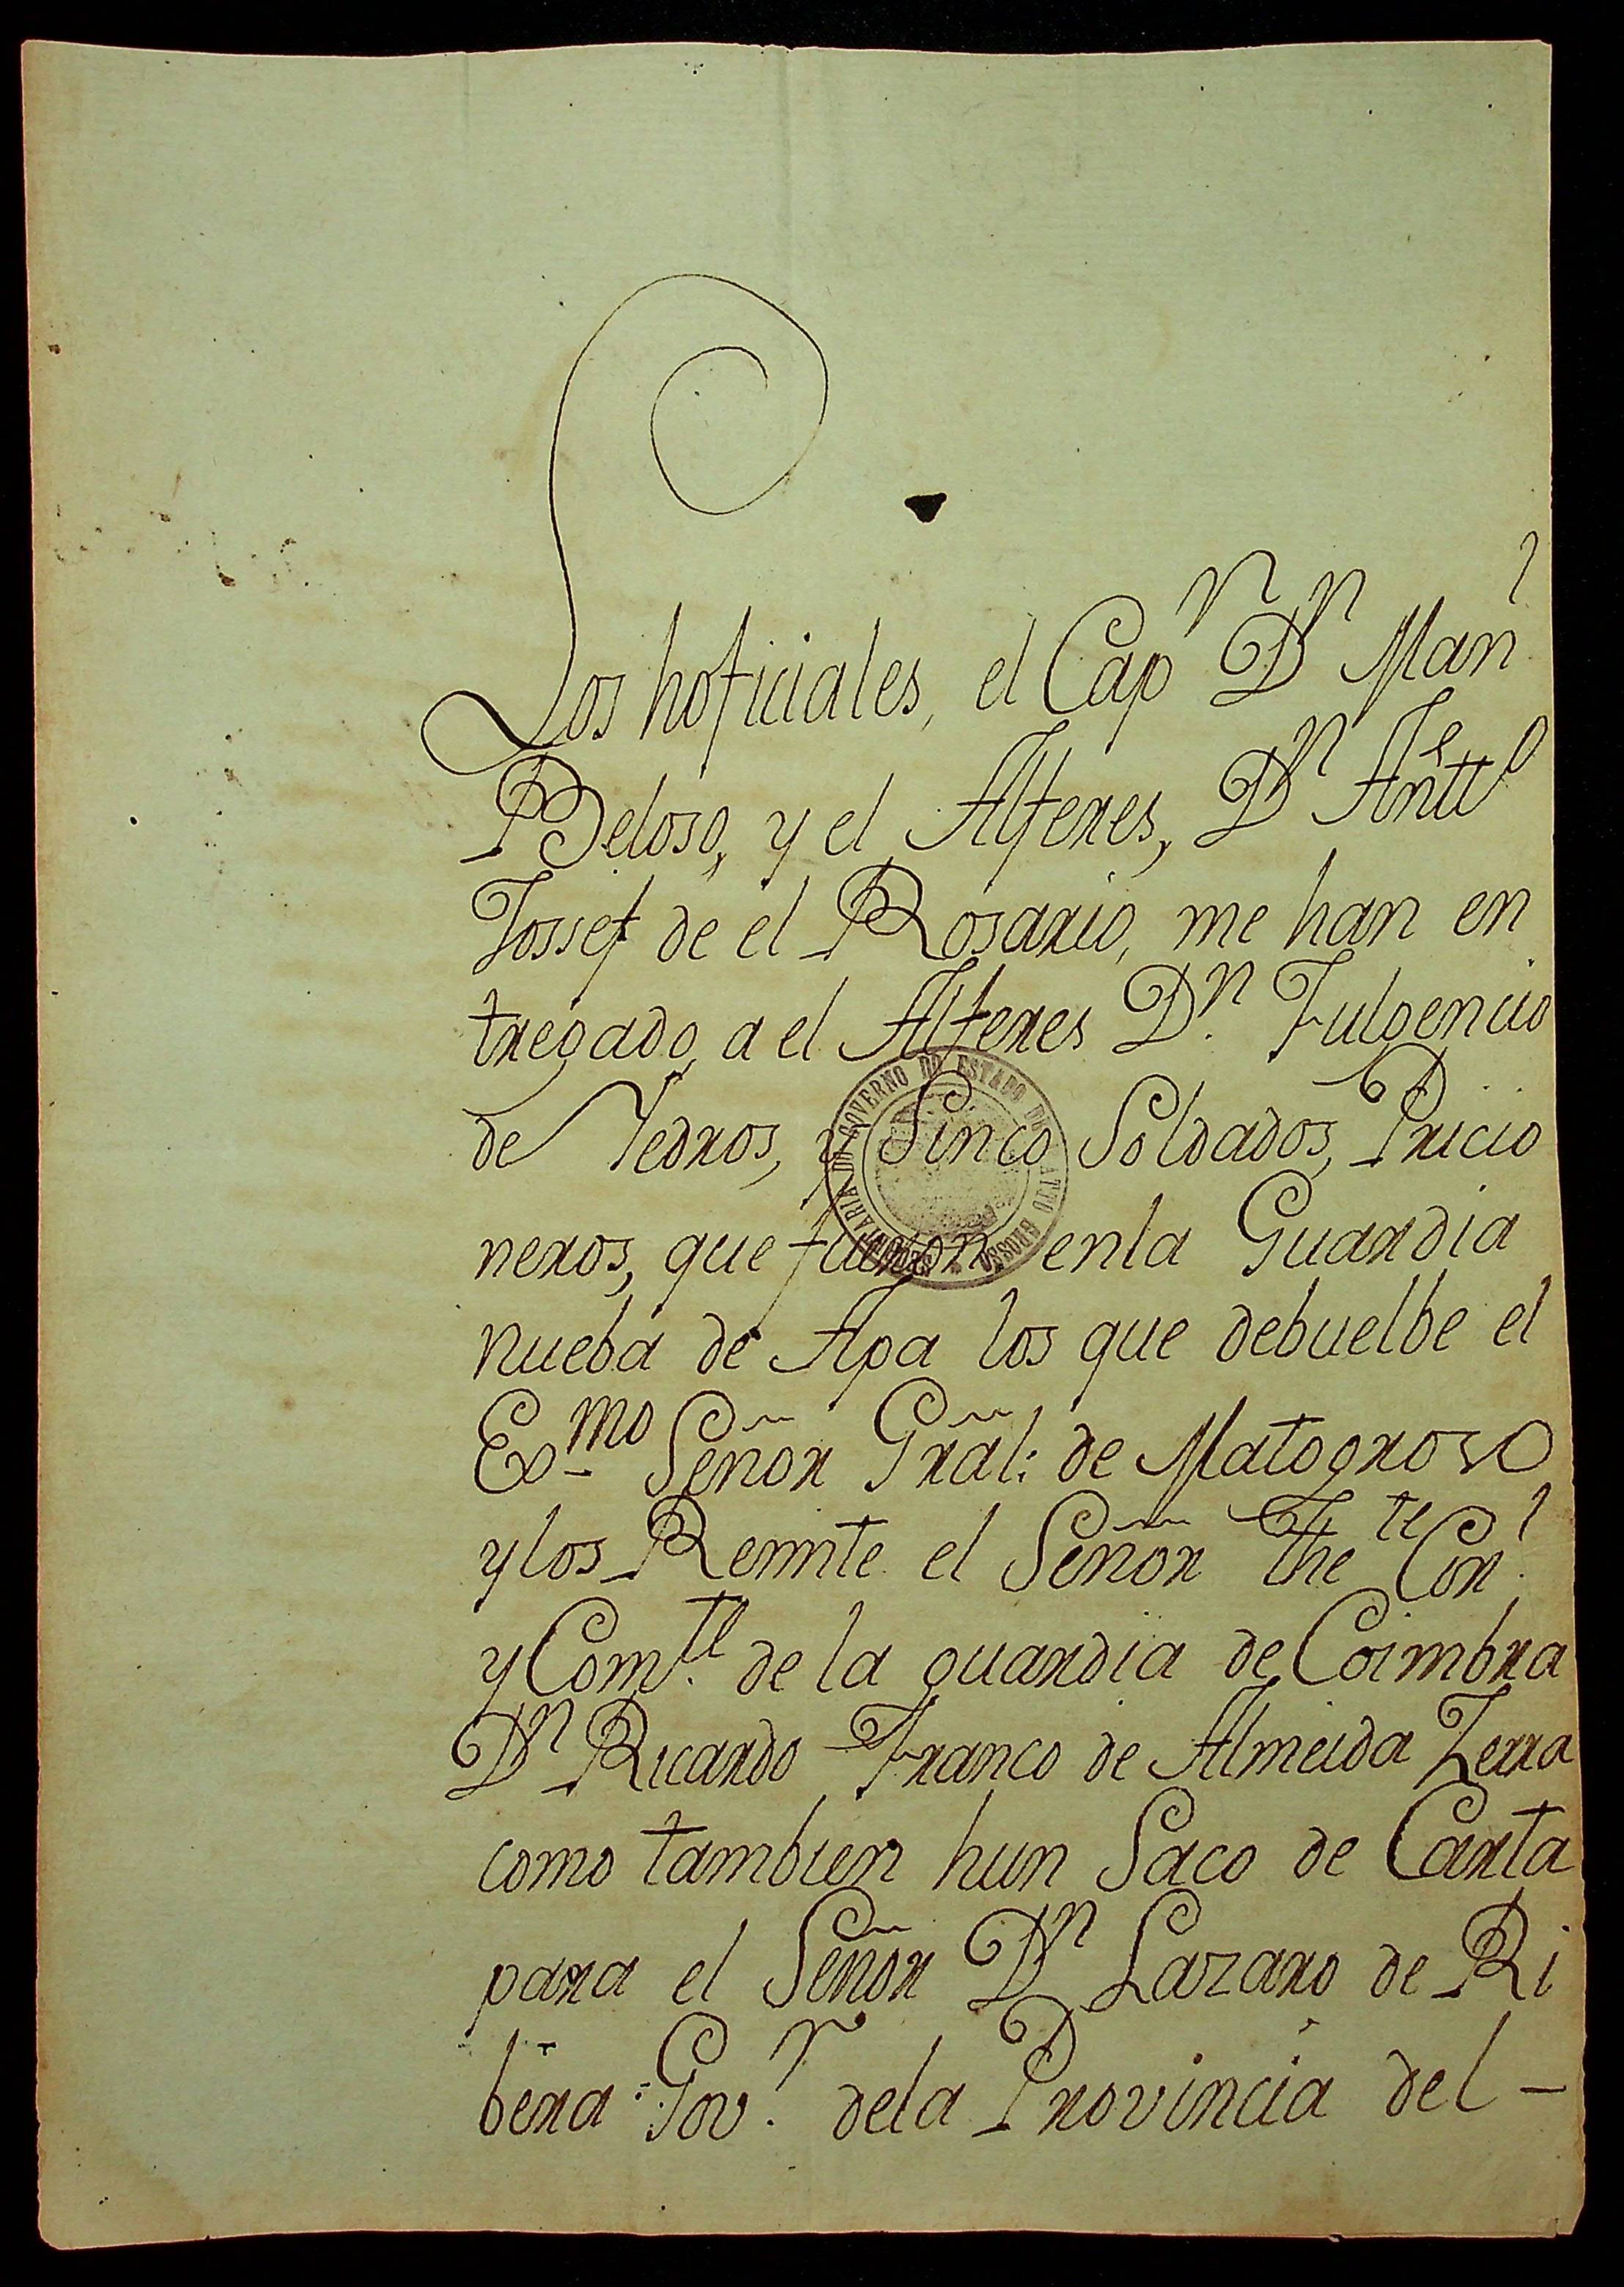 Los hoficiales, el Capn Dn Manl
Beloso, y el Alferes, Dn Antto
Jossef de el Rosario, me han en
tregado, a el Alferes Dn. Fulgencio
de Yedros, y Sinco Soldados, Pricio
neros, que fueron enla Guardia
nueba de Apa los que debuelbe el
Exmo Señor Gñral: de Matogroso
y los Remite el Señor Thete Corl.
y Comte. de la guardia de Coimbra
Dn Ricardo Franco de Almeida Zerra
como tambien hun Saco de Carta
para el Señor Dn Lazaro de Ri
bera Govr. dela Provincia del -
SECRETARIA DO GOVERNO DO ESTADO DE MATTO GROSSO